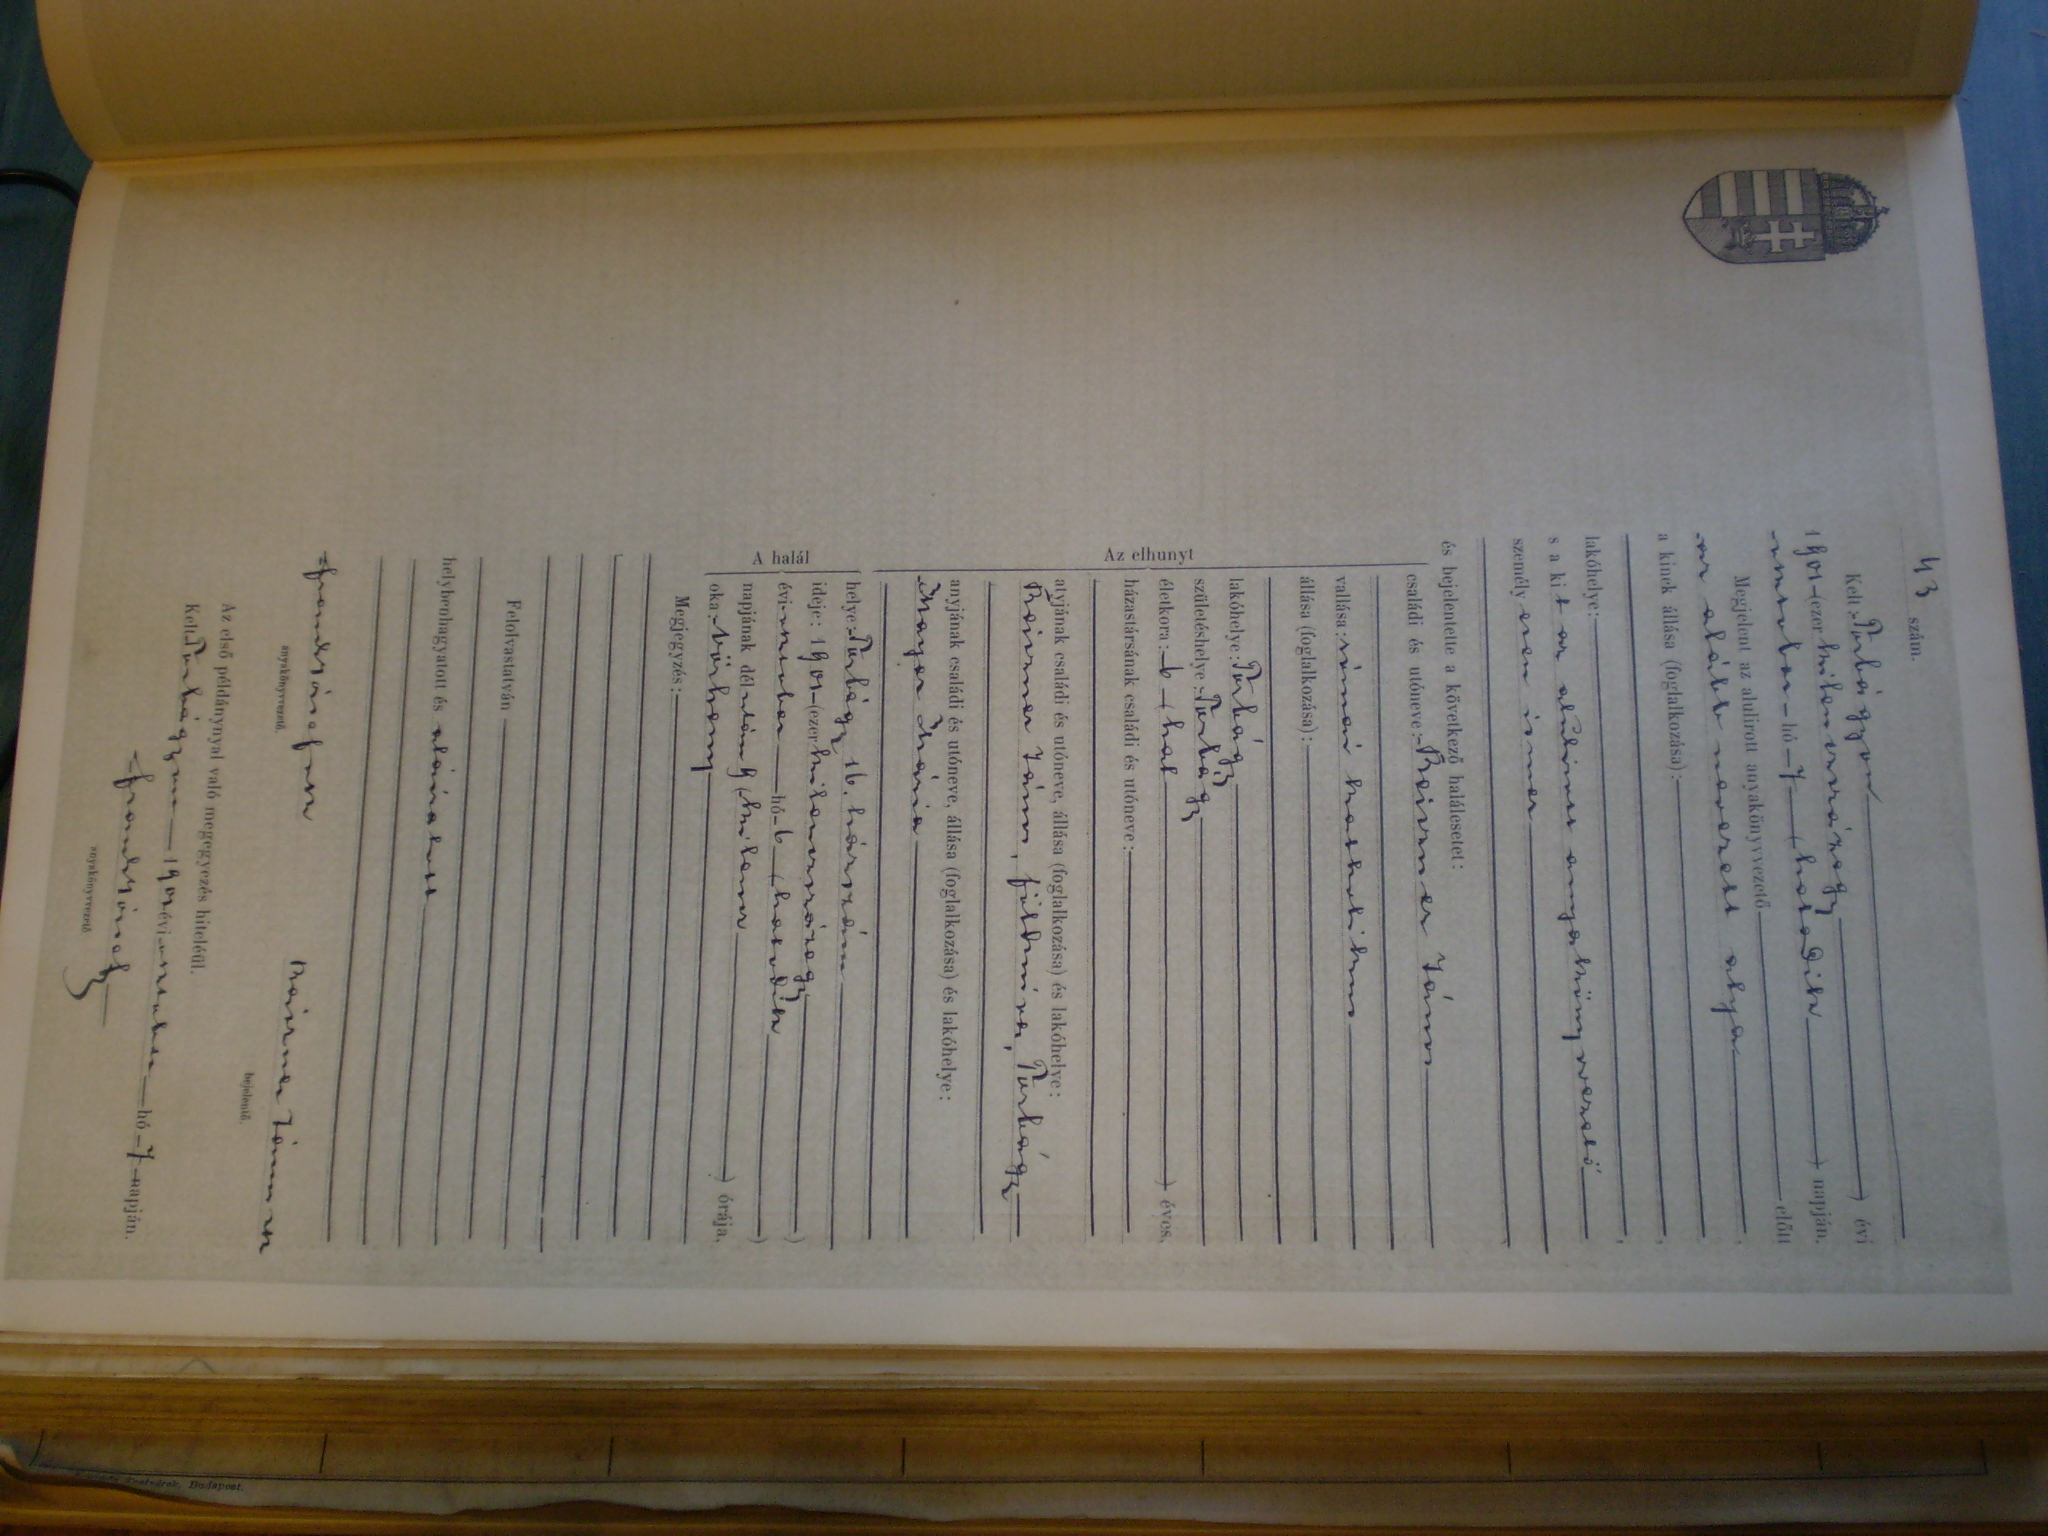 43 szám.
Kelt Torbágyon ) évi
1901 (ezer kilenczszázegy
hó 7 (hetedik ) napján.
Megjelent az alulirott anyakönyvvezető előtt
az alább nevezett atyja ,
a kinek állása (foglalkozása): ,
lakóhelye: ,
s a kit az alulirott anyakönyvvezető
személyesen ismer
és bejelentette a következő halálesetet:
Az elhunyt
családi és utóneve: János
vallása: római katholikus
állása (foglalkozása):
lakóhelye: Torbágy
születéshelye: Torbágy
életkora: 6 (hat ) éves,
házastársának családi és utóneve:
atyjának családi és utóneve, állása (foglalkozása) és lakóhelye:
János, földmíves, Torbágy
anyjának családi és utóneve, állása (foglalkozása) és lakóhelye:
Mayer Mária
A halál
helye: Torbágy 16. házszám
ideje: 1901 (ezer kilenczszázegy )
évi hó 6 (hatodik )
napjának dél után 9 (kilencz ) órája.
oka: Vörheny
Megjegyzés:
Felolvastatván
helybenhagyatott és aláiratott
anyakönyvvezető.
János
bejelentő.
Az első példánynyal való megegyezés hiteléül.
Kelt Torbágyon 1901 évi hó 7 napján.
anyakönyvvezető
Budapest.